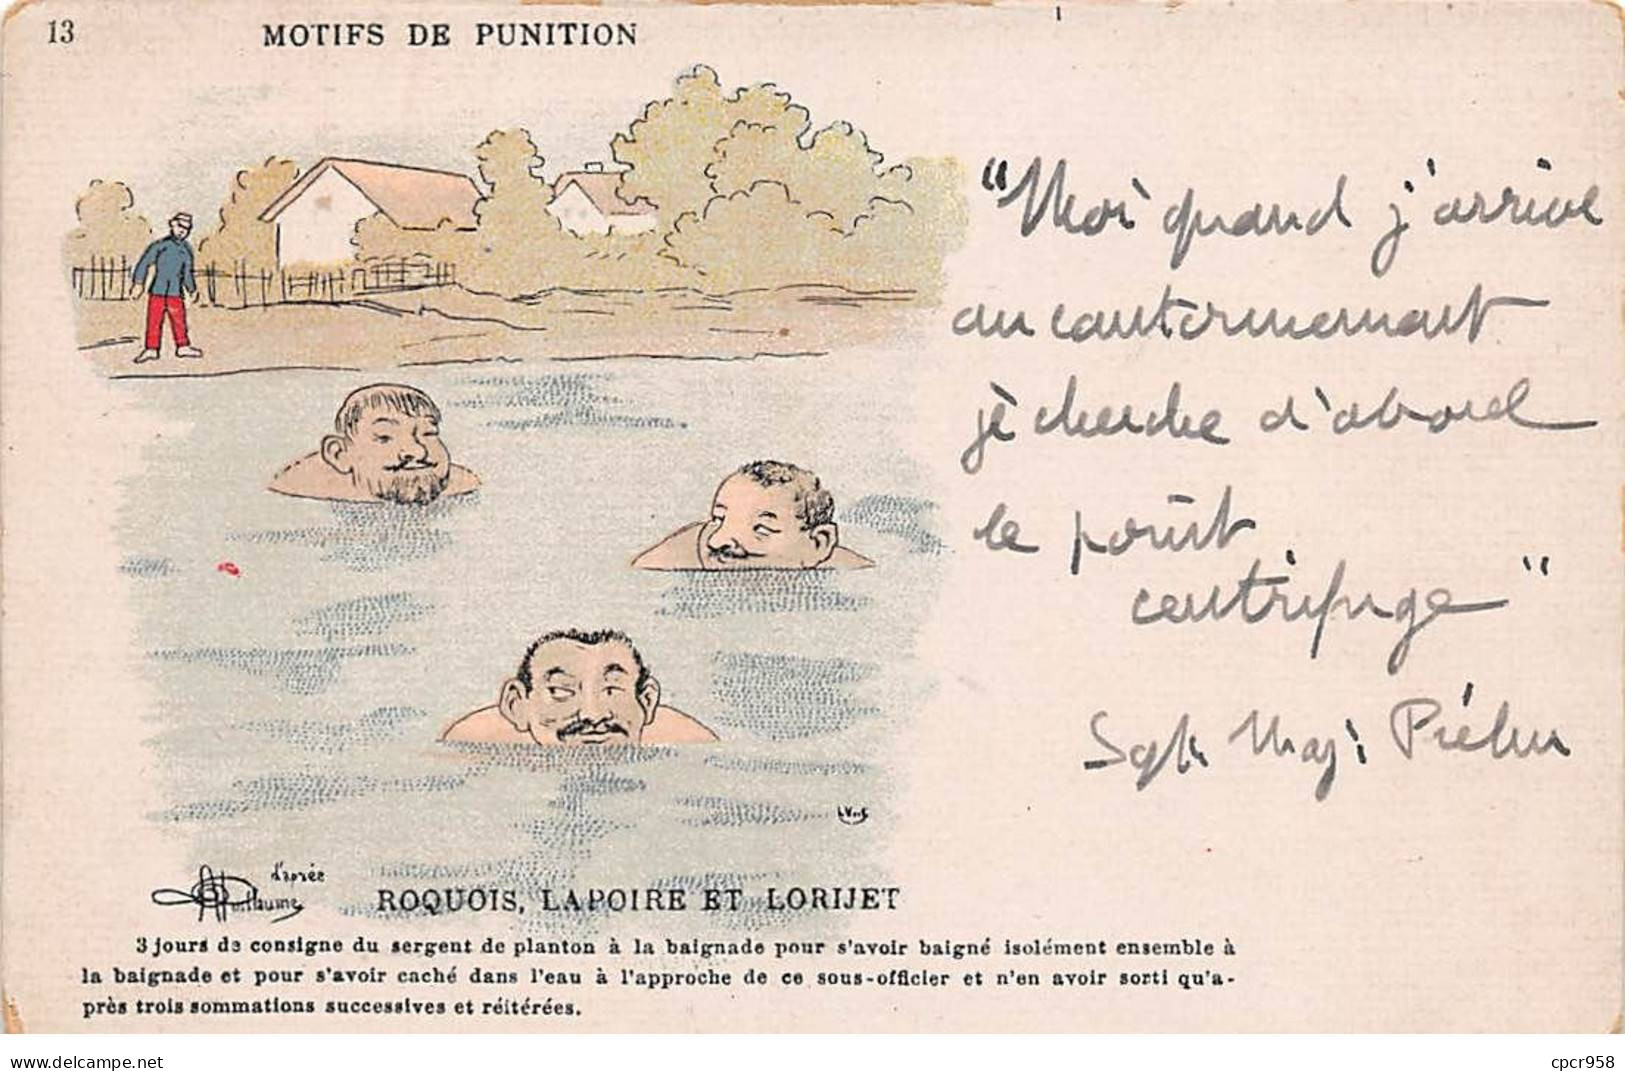 13
MOTIFS DE PUNITION
"Moi quand j'arrive
au cantonnement
je cherche d'abord
le point
centrifuge"
Sgt Maj:
d'après
AGuillaume
ROQUOIS, LAPOIRE ET LORIJET
3 jours de consigne du sergent de planton à la baignade pour s'avoir baigné isolément ensemble à
la baignade et pour s'avoir caché dans l'eau à l'approche de ce sous-officier et n'en avoir sorti qu'a-
près trois sommations successives et réitérées.
delcampe.net
cpcr958